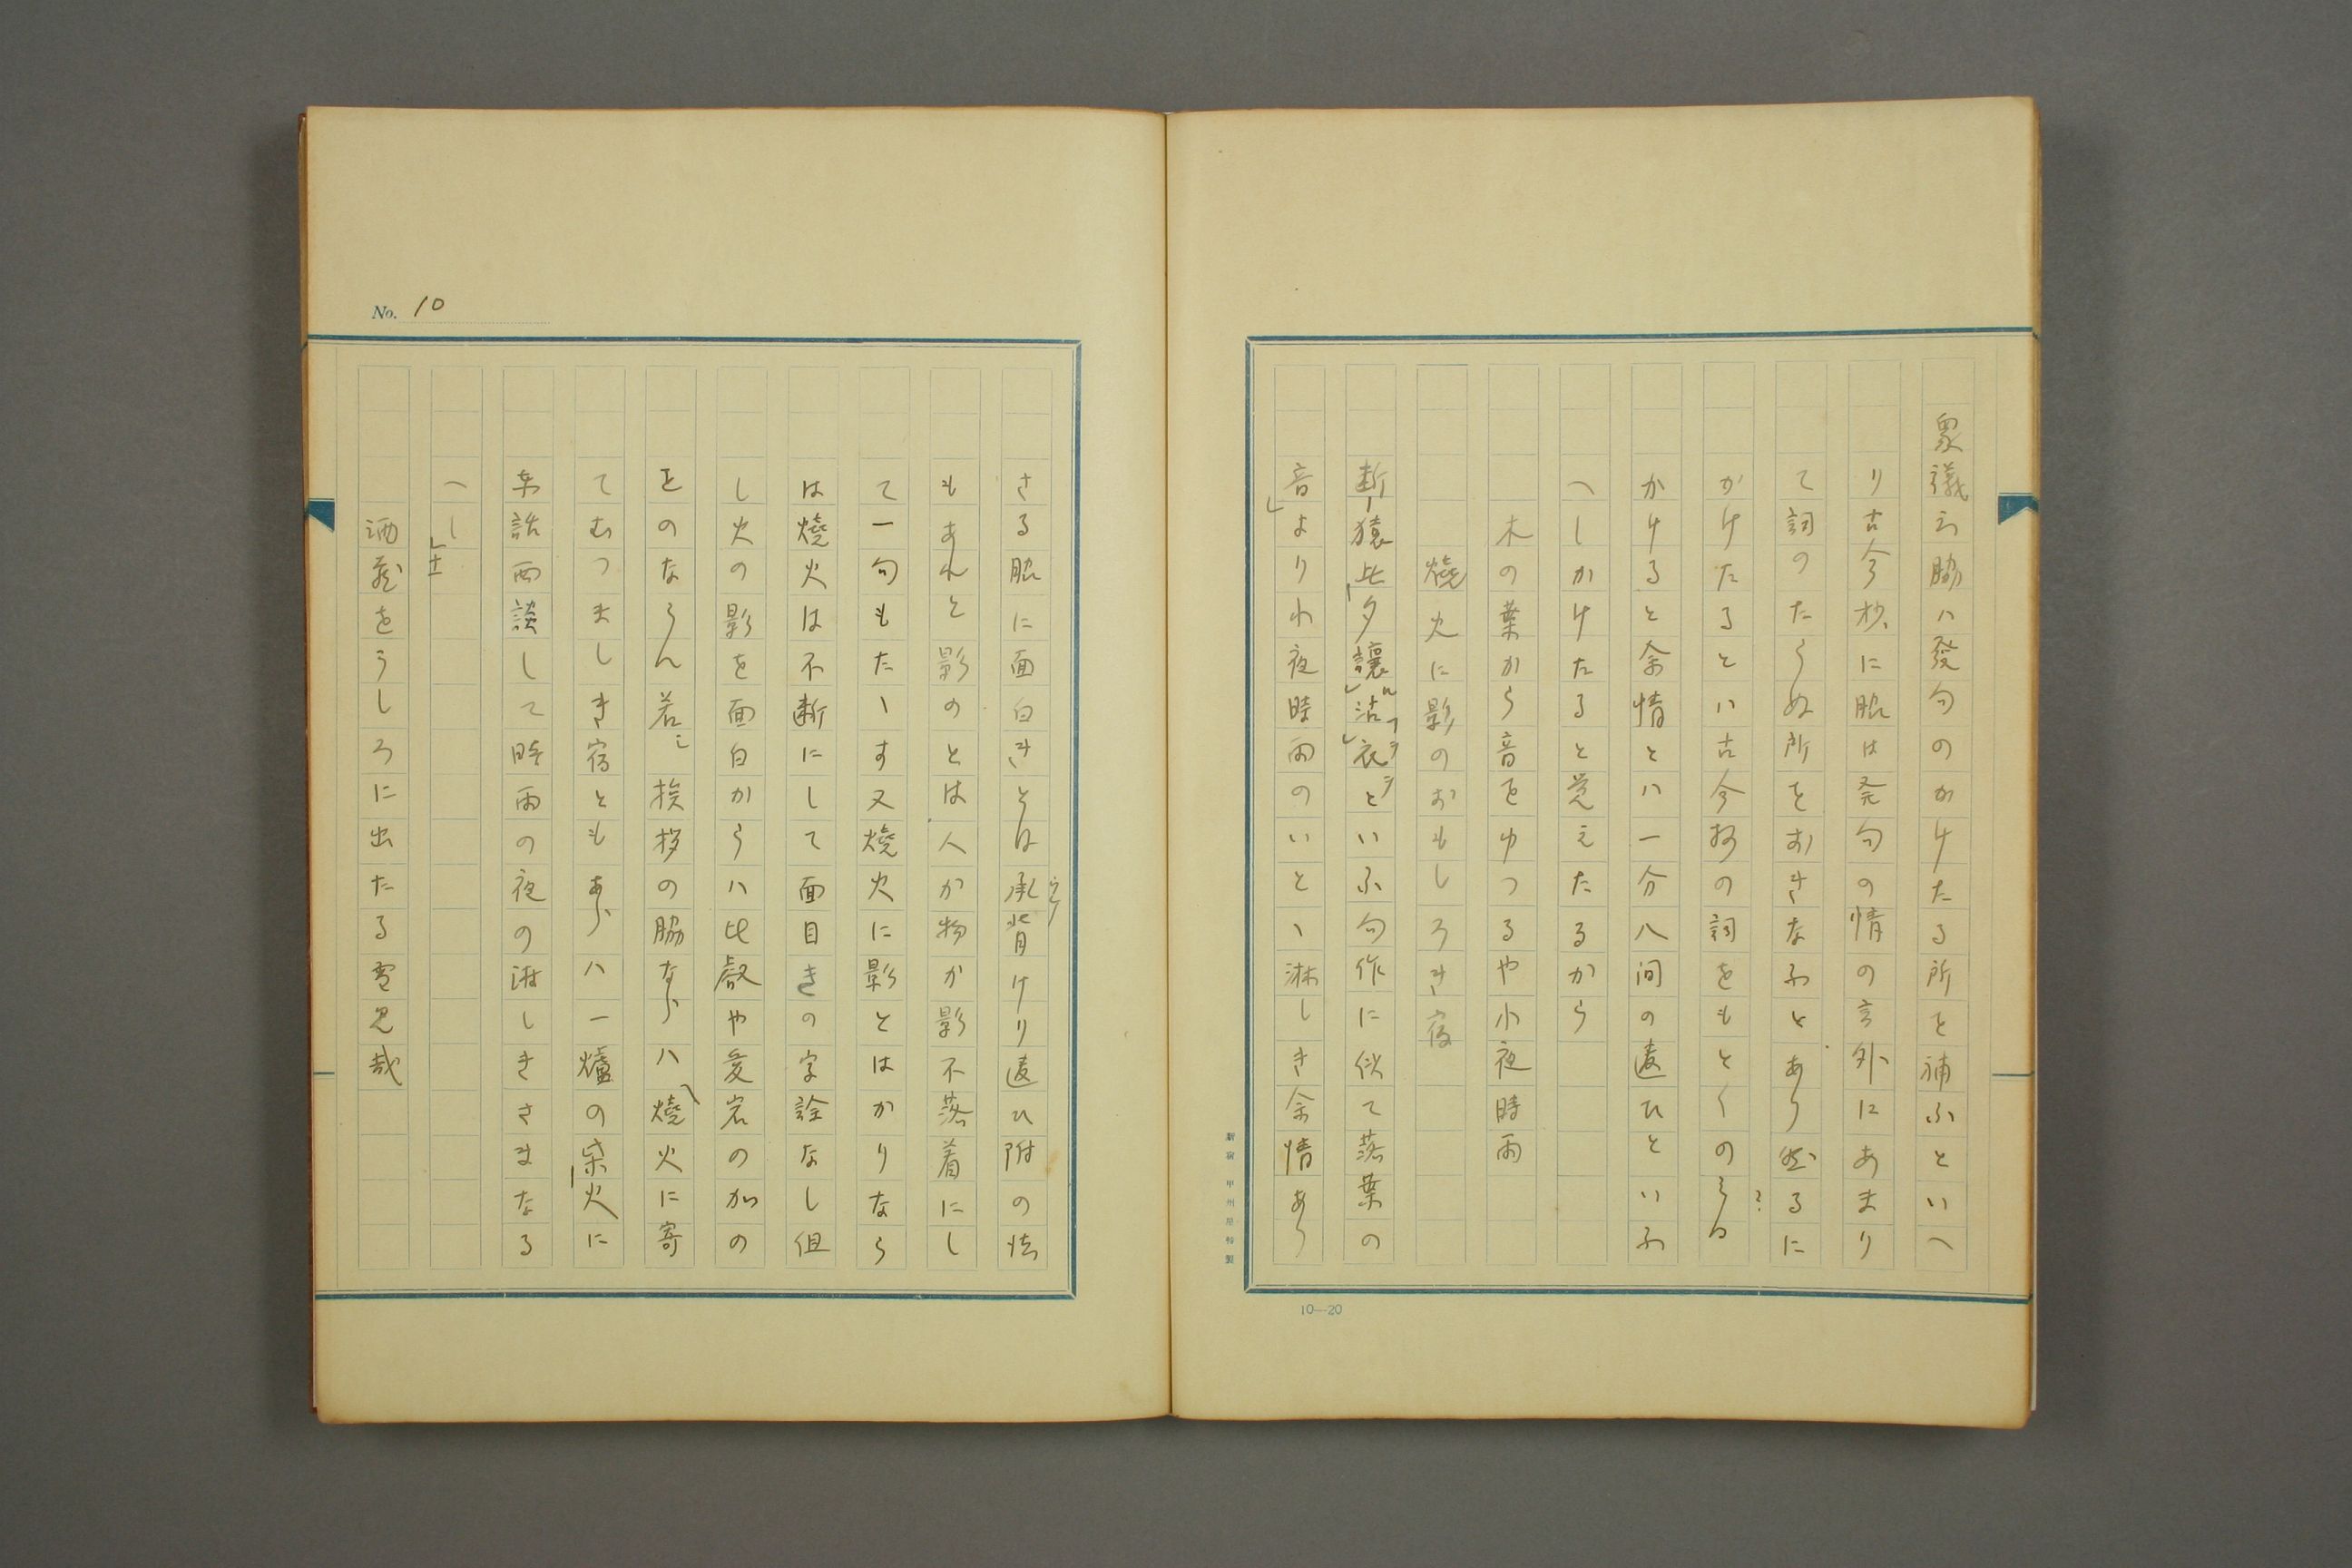 衆議云脇ハ發句のかけたる所を補ふといへ
り古今抄に脇は発句の情の言外にあまり
て詞のたらぬ所をおきなふとあり然るに
かけたるといハ古今抄の詞をもとくの
かけると余情とハ一分八間の違ひといふ
へしかけたると覚えたるから
木の葉から音をゆつるや小夜時雨
燒火に影のおもしろき宿
断猿此夕讓沾衣といふ句作に似て落葉の
音よりわ夜時雨のいとゝ淋しき余情あり
さる脇に面白きとは承背けり違ひ附の怯
もあれと影のとは人か物か影不落着にし
て一句もたゝす又燒火に影とはかりなら
は燒火は不断にして面目きの字詮なし但
し火の影を面白からハ比叡や愛宕のかの
をのならん若シ挨拶の脇ならハ燒火に寄
てむつましき宿ともあらハ一爐の柴火に
東話西談して時雨の夜の淋しきさまなる
へし
酒藏をうしろに出たる雪見哉
No. 10
10―20
新宿 甲州屋特製